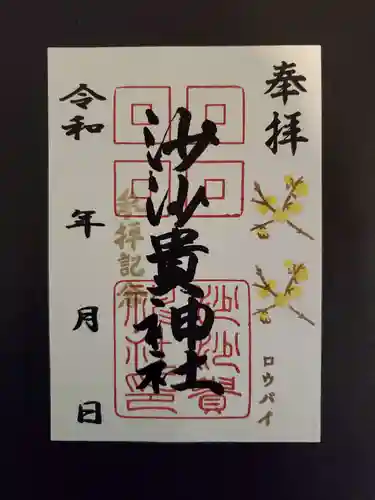 奉拝
ロウバイ
沙沙貴神社
参拝記念
令和 年 月 日